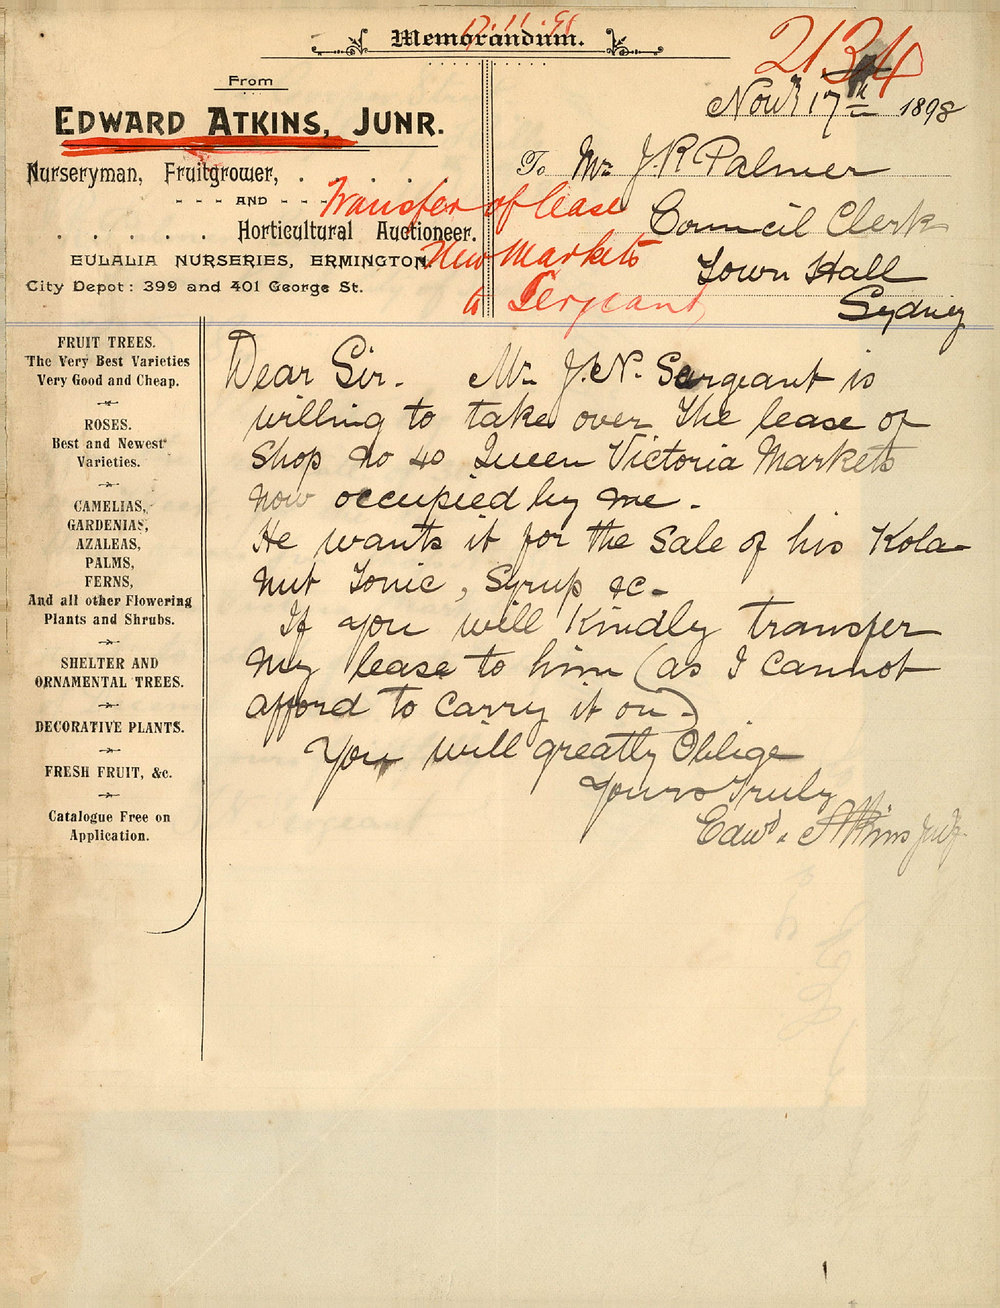 17.11.98
Memorandum.
2134
Novr 17th 1898
From
EDWARD ATKINS, JUNR.
Nurseryman, Fruitgrower,
AND
Horticultural Auctioneer.
EULALIA NURSERIES, ERMINGTON.
City Depot: 399 and 401 George St.
To Mr J. R Palmer
Council Clerk
Town Hall
Sydney
Transfer of lease
New Markets
to Sergeant
FRUIT TREES.
The Very Best Varieties
Very Good and Cheap.
ROSES.
Best and Newest
Varieties.
CAMELIAS,
GARDENIAS,
AZALEAS,
PALMS,
FERNS,
And all other Flowering
Plants and Shrubs.
SHELTER AND
ORNAMENTAL TREES.
DECORATIVE PLANTS.
FRESH FRUIT, &c.
Catalogue Free on
Application.
Dear Sir. Mr J. N. Sergeant is
willing to take over the lease of
Shop No 40 Queen Victoria Markets
now occupied by me.
He wants it for the sale of his Kola
nut Tonic, Syrup &c.
If you will Kindly transfer
my lease to him (as I cannot
afford to carry it on.)
You will greatly Oblige
Yours Truly
Edwd. Atkins Junr